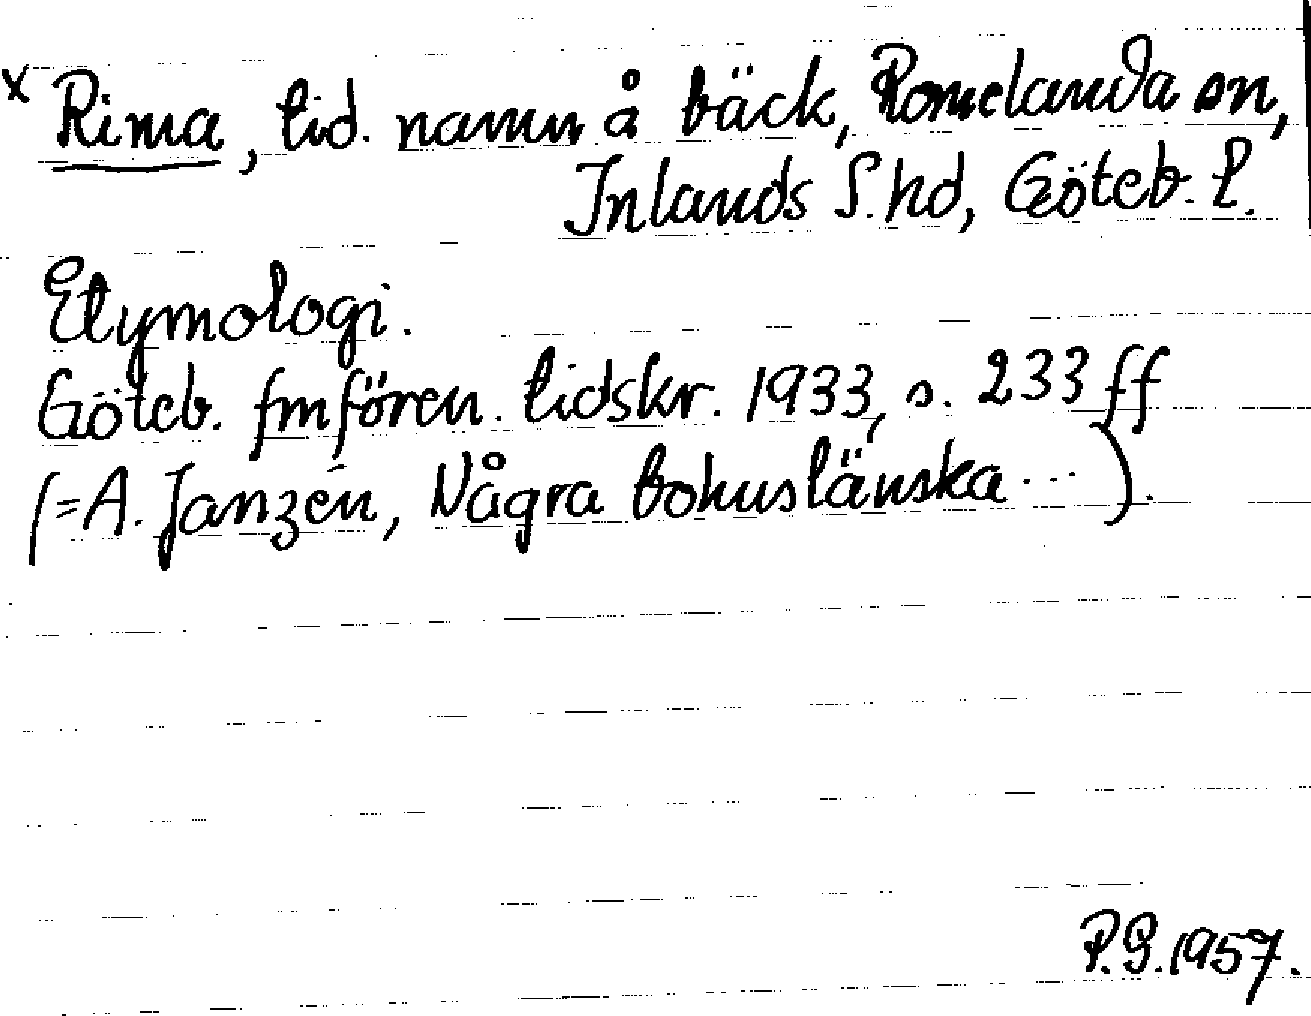 x Rima, tid. namn å bäck, Romelanda sn,
Inlands S. hd, Göteb. l.
Etymologi.
Göteb. fmfören. tidskr. 1933, s. 233 ff
(= A. Janzén, Några bohuslänska ...).
P.G. 1957.